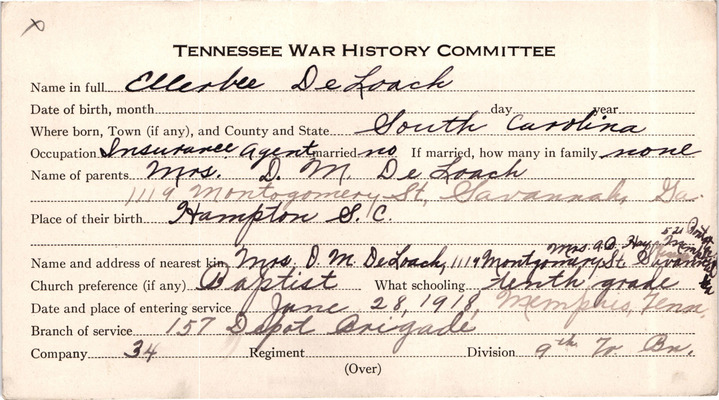 x
TENNESSEE WAR HISTORY COMMITTEE
Name in full Ellerbee DeLoach
Date of birth, month day year
Where born, Town (if any), and County and State South Carolina
Occupation Insurance Agent married no If married, how many in family none
Name of parents Mrs. D. M. De Loach
1119 Montogomery St, Savannah, Ga.
Place of their birth Hampton S. C.
Mrs. A.D.
Name and address of nearest kin Mrs. D. M. DeLoach, 1119 Montgomery St. Savannah
Church preference (if any) Baptist What schooling tenth grade
Date and place of entering service June 28, 1918, Memphis, Tenn.
Branch of service 157 Depot Brigade
Company 34 Regiment Division 9th Tr Bn.
(Over)